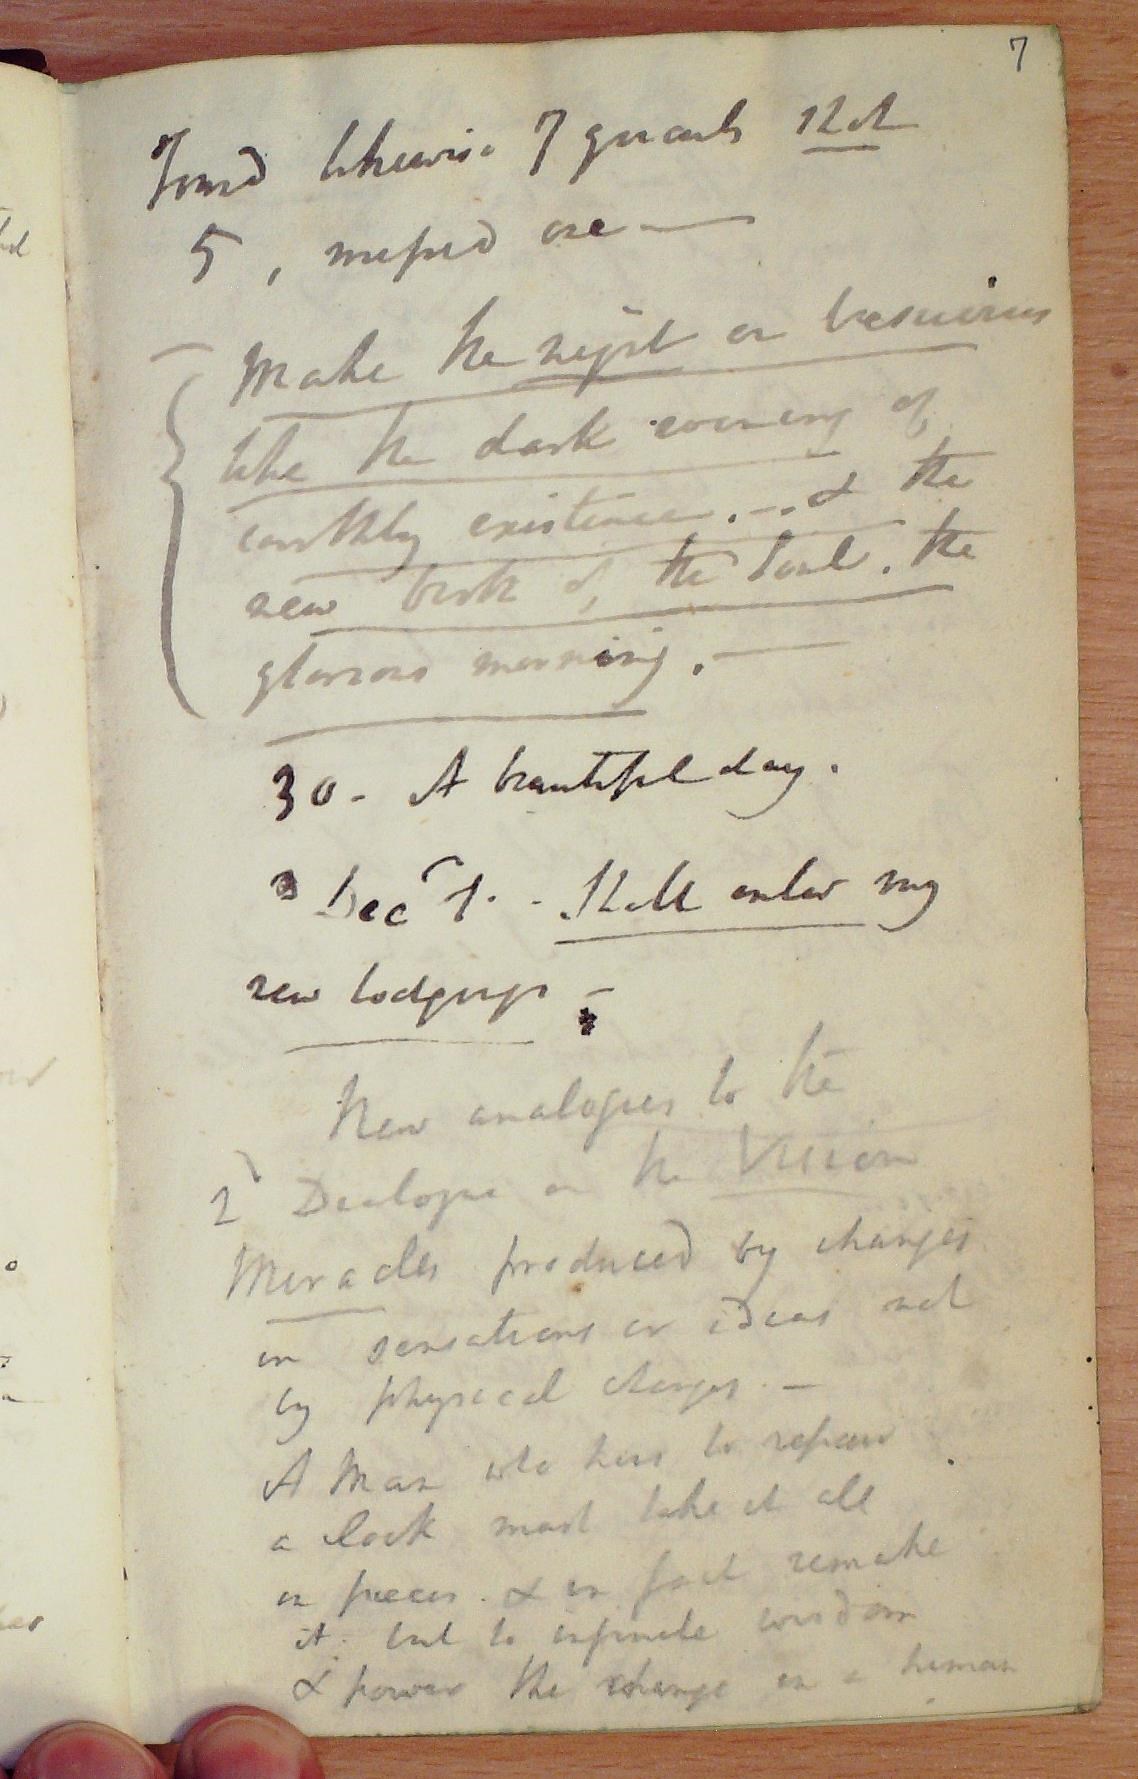 7
Found likewise 7 quails Shot
5, missed one —
Make the night on Vesuvius
like the dark evening of
earthly existence. — . & the
new birth of the soul. the
glorious morning. —
30 - A beautiful day.
Dec r 1. - Shall enter my
new lodgings -
New analogies to the
2 d Dialogue on the Vision
Miracles produced by changes
in sensations or ideas not
by physical changes. —
A Man who has to repair
a clock must take it all
in pieces. & in fact remake
it. but to infinite wisdom
& power the change in a human